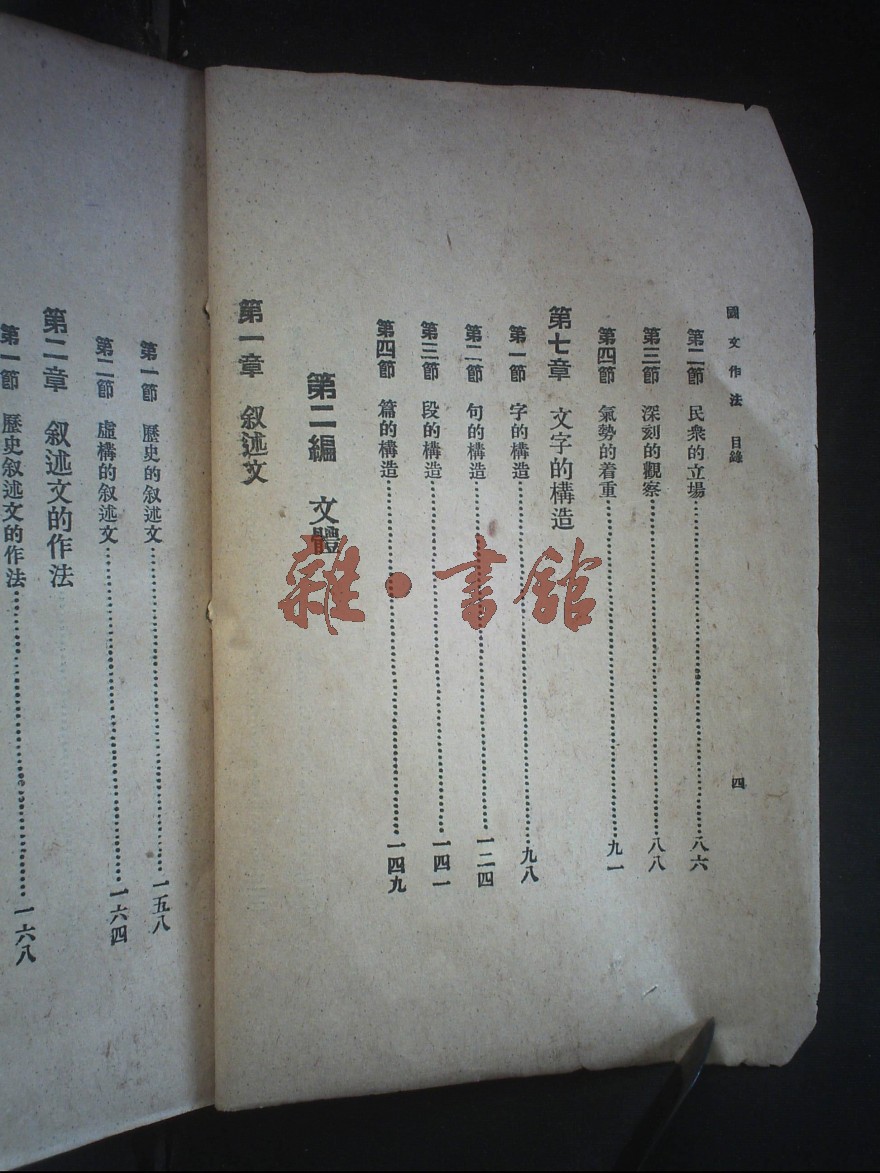 國文作法 目錄 四
第二節 民衆的立場 八六
第三節 深刻的觀察 八八
第四節 氣勢的着重 九一
第七章 文字的構造
第一節 字的構造 九八
第二節 句的構造 一二四
第三節 段的構造 一四一
第四節 篇的構造 一四九
第二編 文體
第一章 叙述文
第一節 歷史的叙述文 一五八
第二節 虛構的叙述文 一六四
第二章 叙述文的作法
第一節 歷史叙述文的作法 一六八
雜·書館